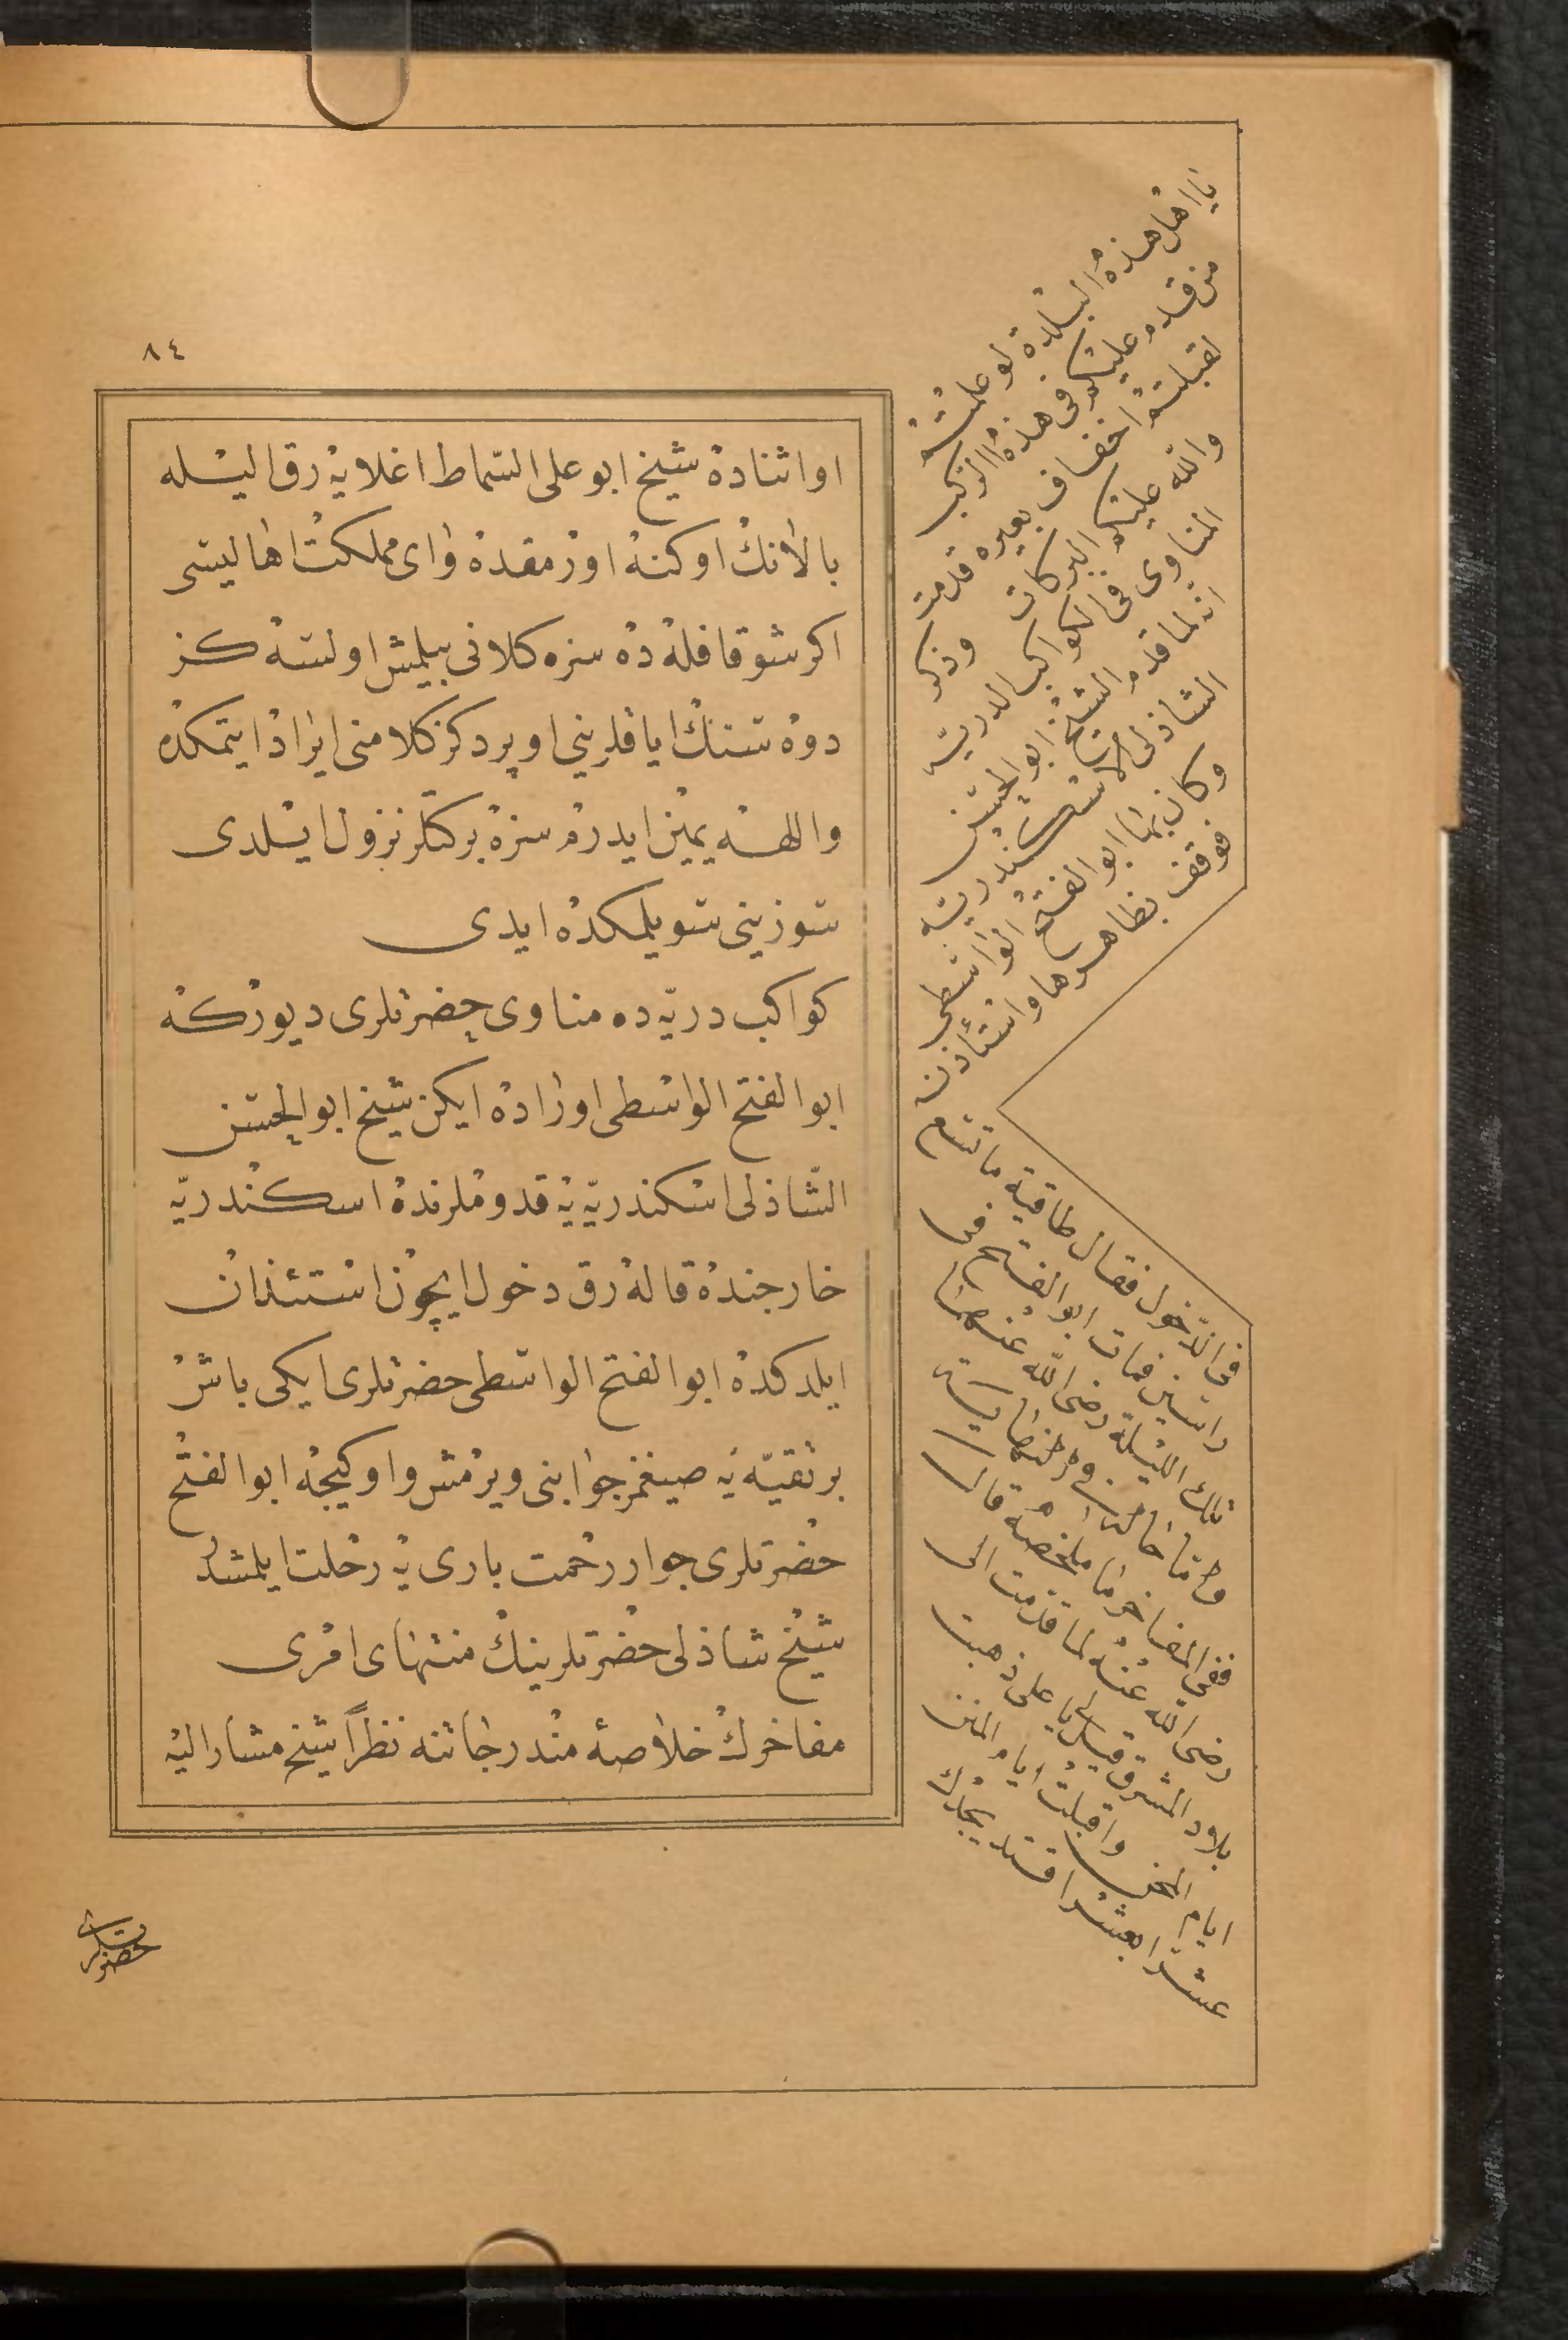 ٨٤
او اثناده شیخ ابو علی السماط اغلایه رق الیسله
بالانك اوکنه اورمقده وای مملکت اهالیسی
اکر شو قافله ده سزه کلانی بیلمش اولسه کز
دوه سنك ایاقلرینی اوپردکز کلامنی ایراد ایتمکده
واللهه یمین ایدرم سزه برکتلر نزول ایسلدی
سوزینی سویلمکده ایدی
کواکب دریّه ده مناوی حضرتلری دیورکه
ابو الفتح الواسطی اوراده ایکن شیخ ابو الحسن
الشّاذلی اسکندریّه یه قدوملرنده اسکندریّه
خارجنده قاله رق دخول ایچون استئذان
ایلدکده ابو الفتح الواسطی حضرتلری ایکی باش
بر تقیّه یه صیغمز جوابنی ویرمش و او کیجه ابو الفتح
حضرتلری جوار رحمت باری یه رحلت ایلمشدر
شیخ شاذلی حضرتلرینك منتهای امری
مفاخرك خلاصهٔ مندرجاتنه نظراً شیخ مشار الیه
حضرتلری
یا اهل هذه البلدة لو علمتم
من قدم علیکم فی هذه الرکب
لقبلتم اخفاف بعیره قدمت
والله علیکم البرکات وذکر
المناوی فی الکواکب الدریة
انه لما قدم الشیخ ابو الحسن
الشاذلی الاسکندریة
وکان بها ابو الفتح الواسطی
فوقف بظاهرها واستأذنه
فی الدّخول فقال طاقیة ما تسع
راسین فمات ابو الفتح فی
تلك اللیلة رضی الله عنهما
واما خاتمة
ففی المفاخر ما ملخصه قال
رضی الله عنه لما قدمت الی
بلاد المشرق قیل لی یا علی ذهبت
ایام المحن واقبلت ایام المنن
عشرا بعشر اقتداء بجدك